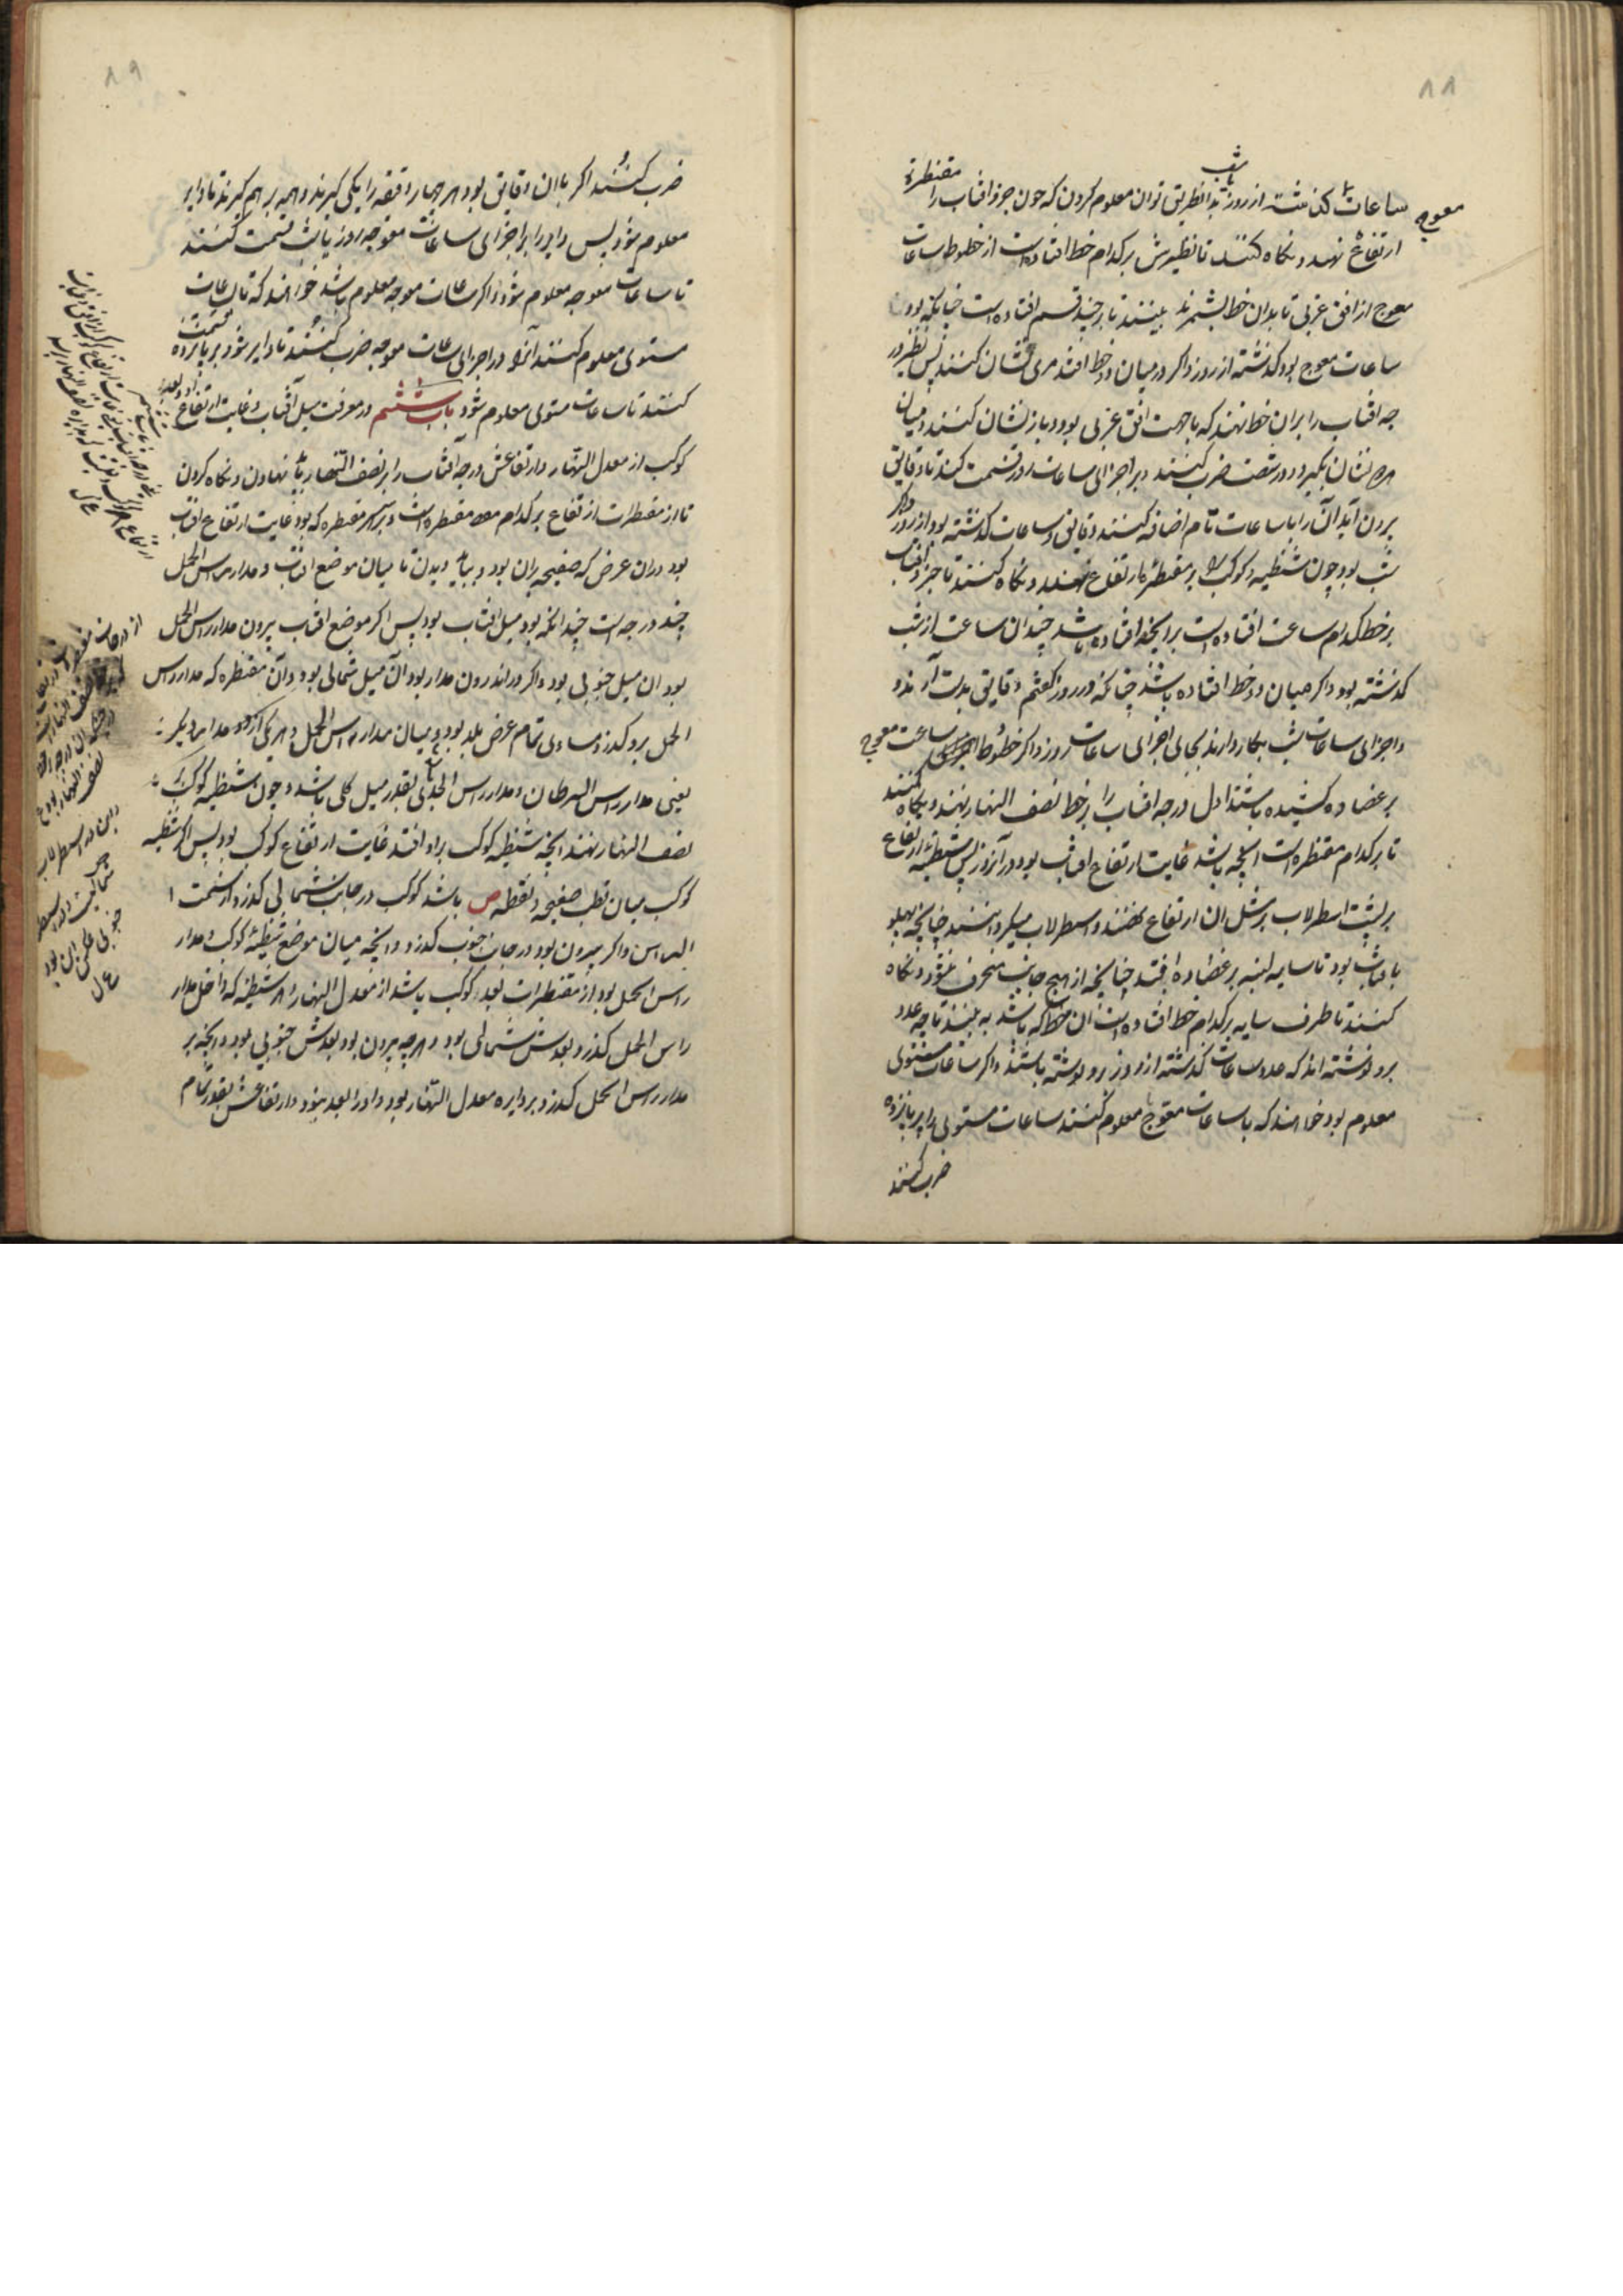 ۸۸
ساعات گذشته از روز یا شب بدانطریق توان معلوم کردن که چون جزو افتاب را مقنطرة
معوج
ارتفاع نهند و نکاه کنند تا نظیرش بر کدام خط افتاده است از خطوط ساعات
معوج از افق غربی تا بدان خط بشمرند ببینند تا بر چند قسم افتاده است چنانکه بود
ساعات معوج بود کذشته از روز و اکر در میان دو خط افتد مری نشان کنند پس نظیر در
جه افتاب را بران خط نهند که با جهت افق غربی بود و باز نشان کنند و میان
هر دو نشان بکیرد و در شصت ضرب کنند و بر اجزای ساعات روز قسمت کنند تا دقایق
برون آید آن را با ساعات تام اضافه کنند دقایق و ساعات کذشته بود از روز و اکر
شب بود چون شظیه کوکب را بر مقنطره ارتفاع نهند و نکاه کنند تا جزو افتاب
بر خط کدام ساعت افتاده است برانچه افتاده باشد چندان ساعت از شب
کذشته بود و اکر میان دو خط افتاده باشد چنانکه در روز کفتیم دقایق بدست آرند و
و اجزای ساعات شب بکار دارند بجای اجزای ساعات روز و اکر خطوط ساعت معوج
بر عضاده کشیده باشند اول درجه افتاب را بر خط نصف النهار نهند و نکاه کنند
تا بر کدام مقنطره است انچه باشد غایت ارتفاع افتاب بود در آنروز پس شظیه ارتفاع
بر پشت اسطرلاب بر مثل ان ارتفاع نهند و اسطرلاب میکردانند چنانچه پهلو
با افتاب بود تا سایه لبنه بر عضاده افتد چنانچه از هیچ جانب منحرف نشود و نکاه
کنند تا طرف سایه بر کدام خط افتاده است ان خط که باشد ببینند تا چه عدد
برو نوشته اند که عدد ساعات کذشته از روز برو نوشته باشند و اکر ساعات مستوی
معلوم بود خواهند که با ساعات معوج معلوم کنند ساعات مستوی را بر پانزده
ضرب کنند
۸۹
ضرب کنند و اکر با ان دقایق بود هر چهار دقیقه را یکی کیرند و همه بر هم کیرند تا دایر
معلوم شود پس دایر را بر اجزای ساعات معوجه روز یا شب قسمت کنند
تا ساعات معوجه معلوم شود و اکر ساعات معوجه معلوم باشد خواهند که تا ساعات
مستوی معلوم کنند آنرا در اجزای ساعات معوجه ضرب کنند تا دایر شود بر پانزده قسمت
کنند تا ساعات مستوی معلوم شود باب ششم در معرفت میل آفتاب و غایت ارتفاع و بعد
کوکب از معدل النهار و ارتفاعش درجه آفتاب را بر نصف النهار باید نهادن و نکاه کردن
تا از مقنطرات ارتفاع بر کدام مقنطره است و بر هر مقنطره که بود غایت ارتفاع افتاب
بود در ان عرض که صفیحه بران بود و بباید دیدن تا میان موضع افتاب و مدار راس الحمل
چند درجه است چندانکه بود میل افتاب بود پس اکر موضع افتاب بیرون مدار راس الحمل
بود ان میل جنوبی بود و اکر در اندرون مدار بود آن میل شمالی بود و آن مقنطره که مدار راس
الحمل برو کذرد مساوی تمام عرض بلد بود و میان مدار راس الحمل و هر یکی از دو مدار دیکر
یعنی مدار راس السرطان و مدار راس الجدی بقدر میل کلی باشد و چون شظیه کوکب بر
نصف النهار نهند انچه شظیه کوکب بر او افتد غایت ارتفاع کوکب بود پس اکر شظیه
کوکب میان قطب صفیحه و نقطه ص باشد کوکب در جانب شمالی کذرد از سمت ا
الراس و اکر بیرون بود در جانب جنوب کذرد و انچه میان موضع شظیه کوکب و مدار
راس الحمل بود از مقنطرات بعد کوکب باشد از معدل النهار و هر شظیه که داخل مدار
راس الحمل کذرد بعدش شمالی بود و هر چه بیرون بود بعدش جنوبی بود و انچه بر
مدار راس الحمل کذرد بر دایره معدل النهار بود و او را بعد نبود و ارتفاعش بقدر تمام